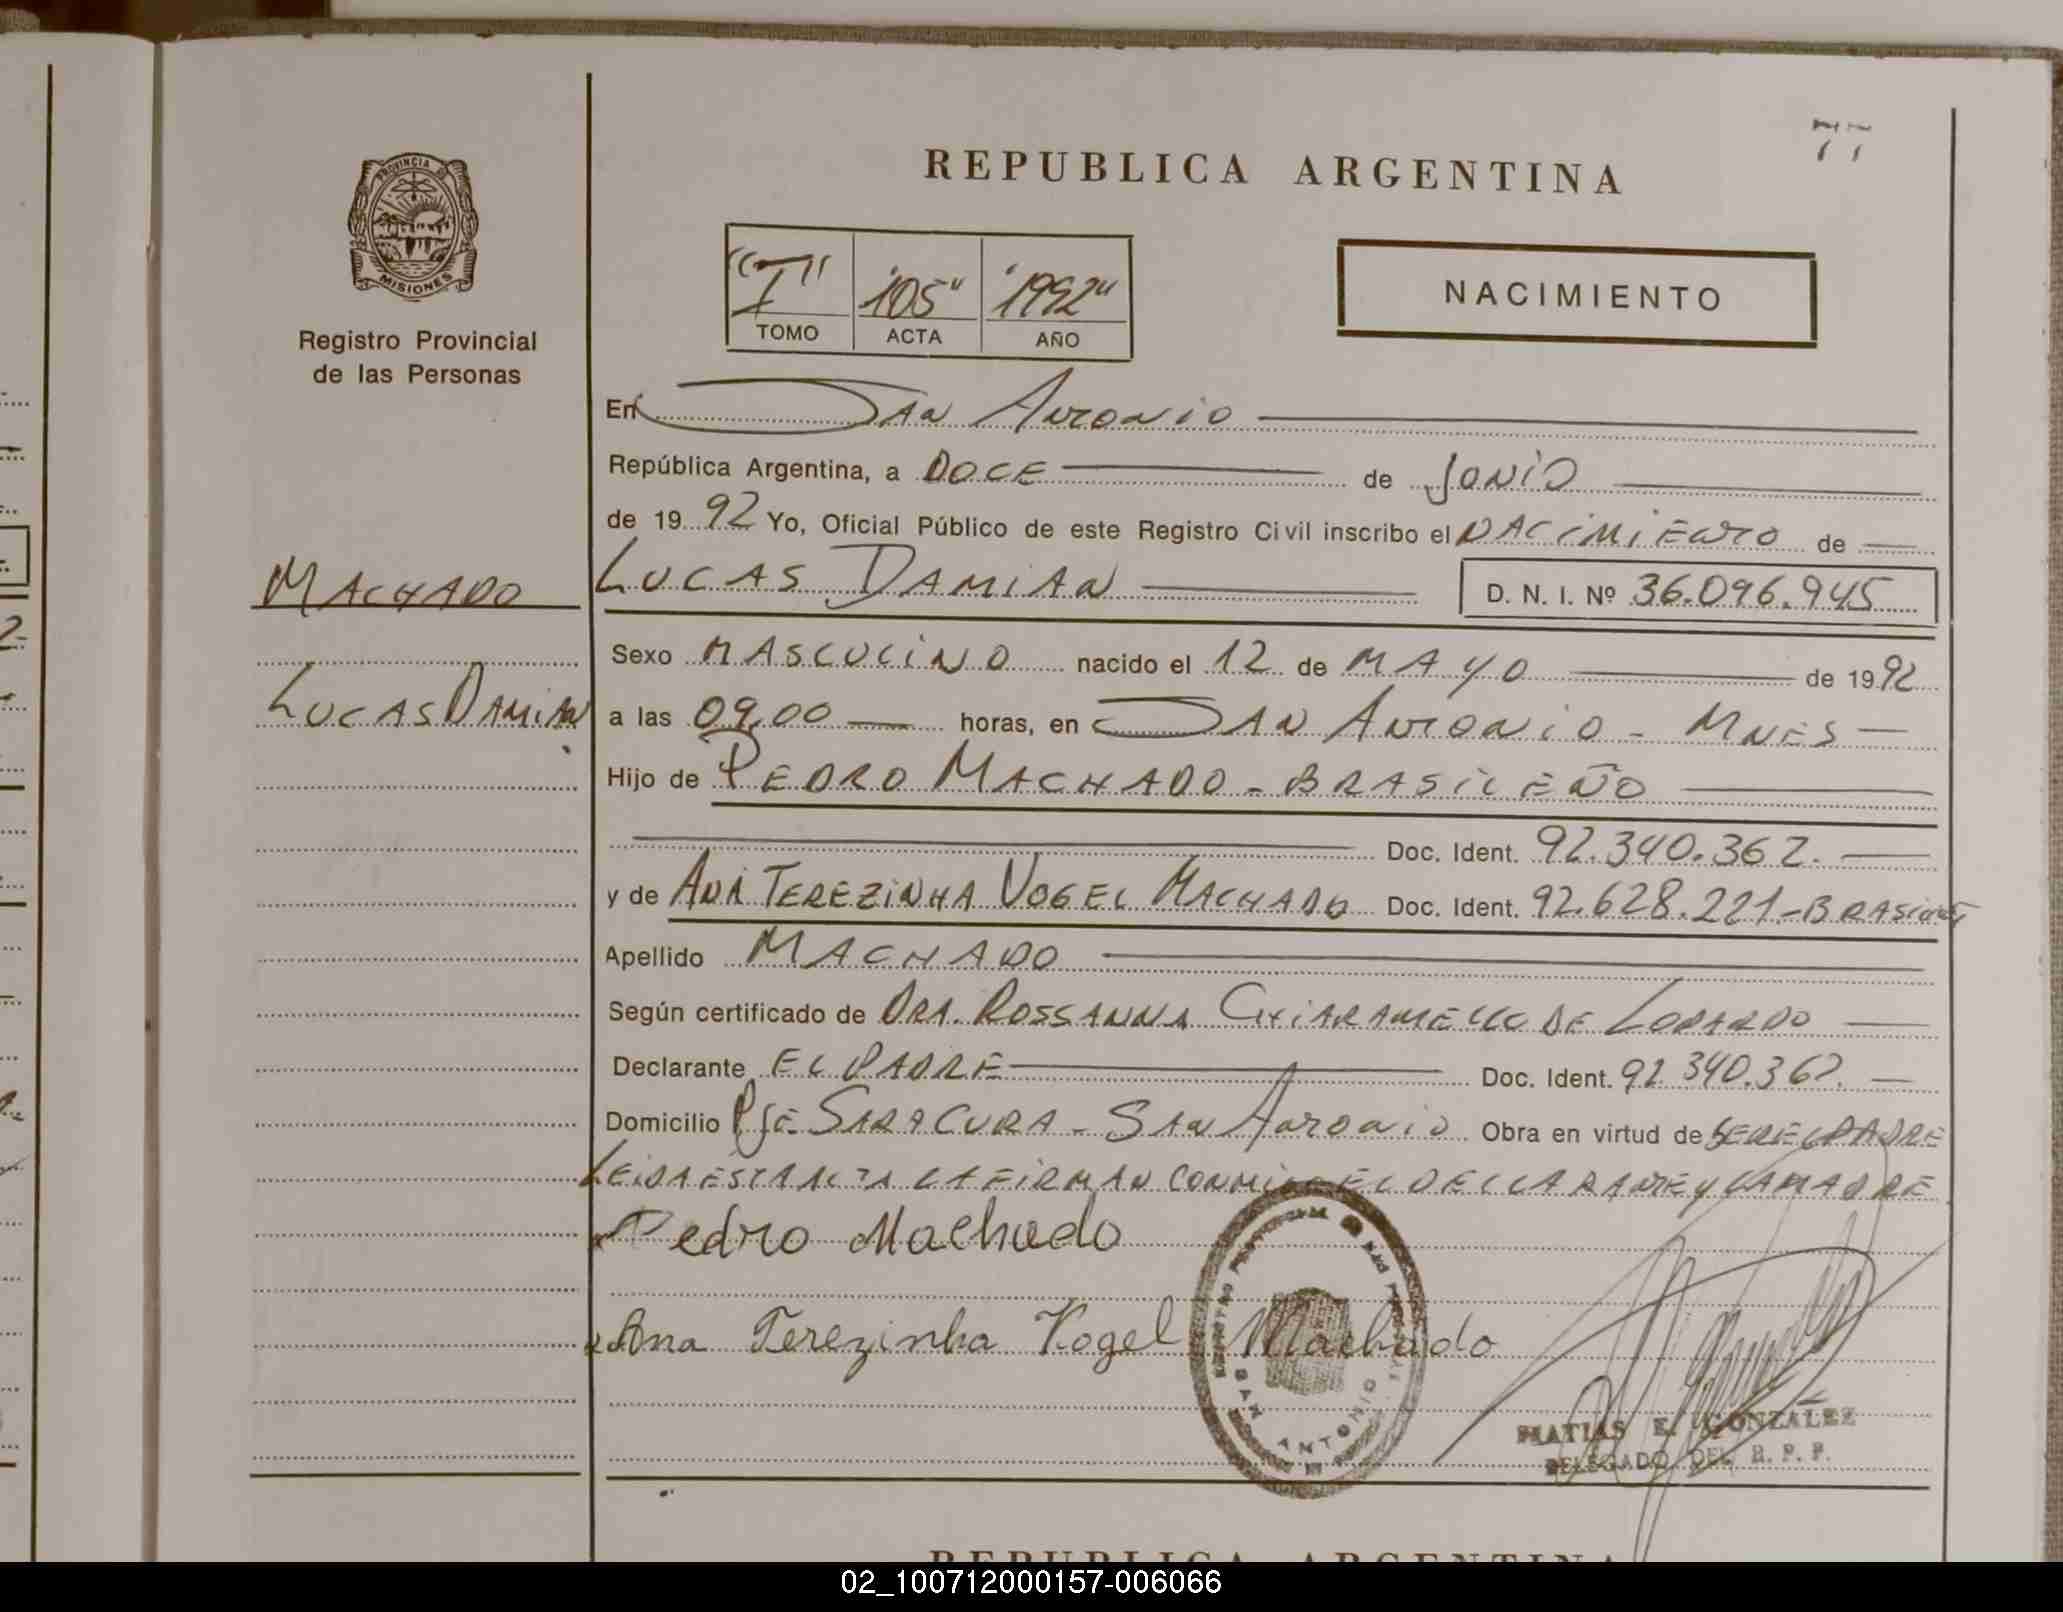 77
REPUBLICA ARGENTINA
PROVINCIA
MISIONES
Registro Provincial
de las Personas
"I" "105" "1992"
TOMO ACTA AÑO
NACIMIENTO
En San Antonio
República Argentina, a DOCE de JUNIO
de 1992 Yo, Oficial Público de este Registro Civil inscribo el NACIMIENTO de
MACHADO
LUCAS DAMIAN D. N. I. Nº 36.096.945
Sexo MASCULINO nacido el 12 de MAYO de 1992
LUCAS DAMIAN
a las 09,00 horas, en SAN ANTONIO - MNES
Hijo de PEDRO MACHADO - BRASILEÑO
Doc. Ident. 92.340.362.
y de ANA TEREZINHA VOGEL MACHADO Doc. Ident. 92.628.221 - BRASILEÑA
Apellido MACHADO
Según certificado de DRA. ROSSANNA CHIARAMELLO DE LODARDO
Declarante EL PADRE Doc. Ident. 92.340.362.
Domicilio PJE SARACURA - SAN ANTONIO Obra en virtud de SER EL PADRE
LEIDA ESTA ACTA LA FIRMAN CONMIGO EL DECLARANTE Y LA MADRE
Pedro Machado
Ana Terezinha Vogel Machado
SAN ANTONIO
MATIAS E. GONZALEZ
DELEGADO DEL R. P. P.
REPUBLICA ARGENTINA
02_100712000157-006066